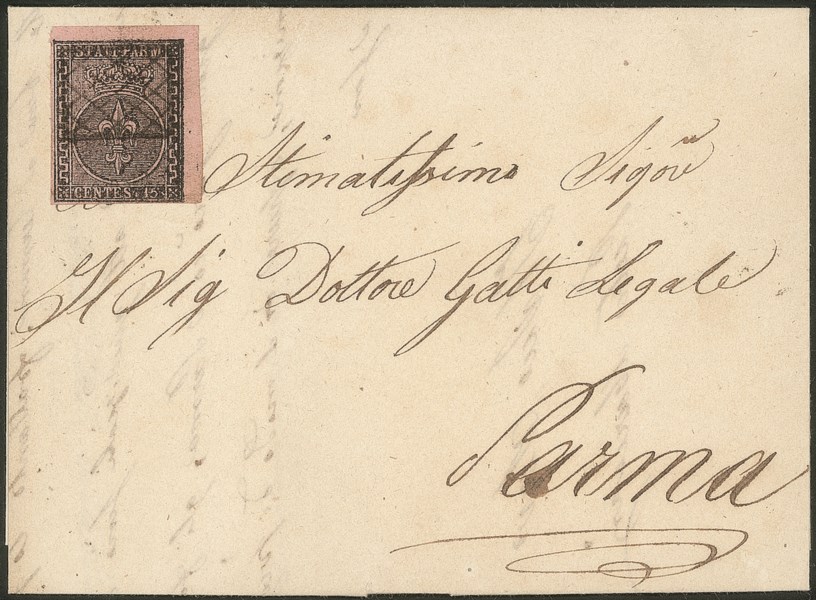 STATI PARM.
CENTES. 15
Stimatissimo Sigore
Il Sig Dottore Gatti Legale
Parma